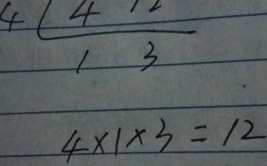 4 4 12
1 3
4×1×3=12